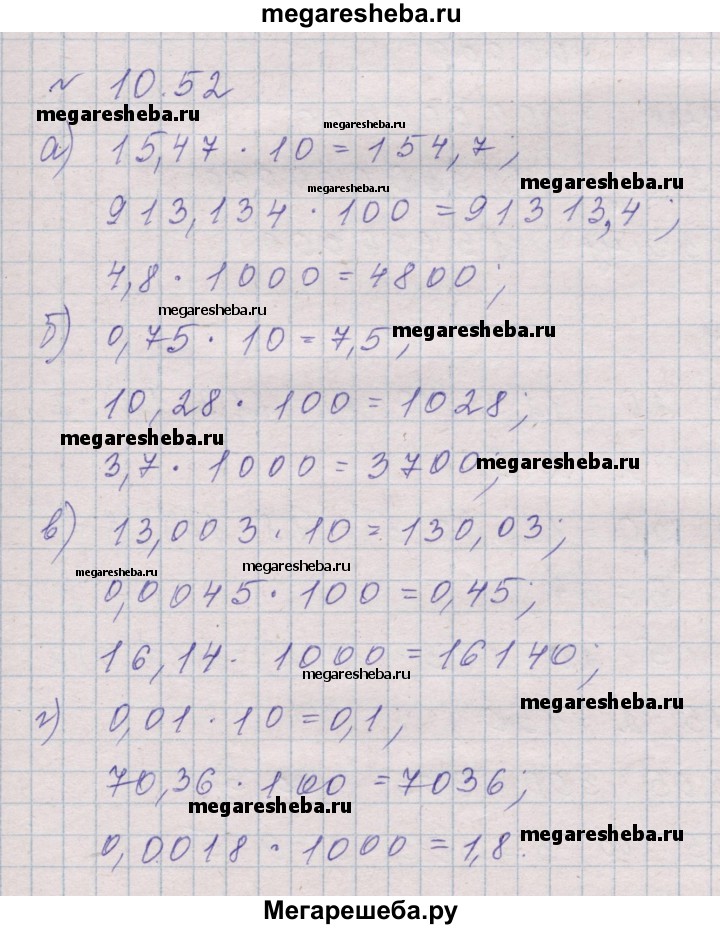 megaresheba.ru
№ 10.52
megaresheba.ru
megaresheba.ru
а) 15,47 · 10 = 154,7;
megaresheba.ru
megaresheba.ru
913,134 · 100 = 91313,4;
4,8 · 1000 = 4800;
megaresheba.ru
б) 0,75 · 10 = 7,5;
megaresheba.ru
10,28 · 100 = 1028;
megaresheba.ru
3,7 · 1000 = 3700;
megaresheba.ru
в) 13,003 · 10 = 130,03;
megaresheba.ru
megaresheba.ru
0,0045 · 100 = 0,45;
16,14 · 1000 = 16140;
megaresheba.ru
megaresheba.ru
г) 0,01 · 10 = 0,1;
70,36 · 100 = 7036;
megaresheba.ru
megaresheba.ru
0,0018 · 1000 = 1,8.
Мегарешеба.ру